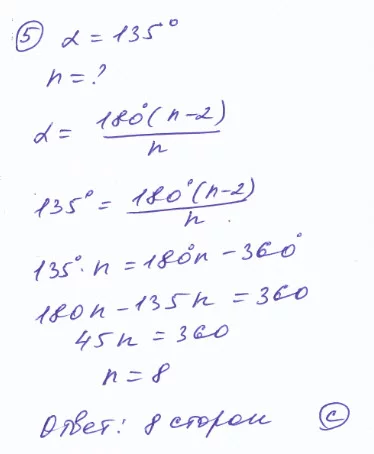 ⑤ α = 135°
n = ?
α = 180°(n-2)/n
135° = 180°(n-2)/n
135°·n = 180°n - 360°
180n - 135n = 360
45n = 360
n = 8
Ответ: 8 сторон Ⓒ